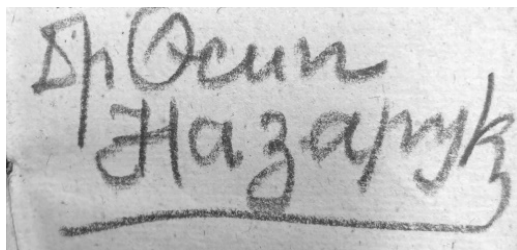 Др Осип
Назарук